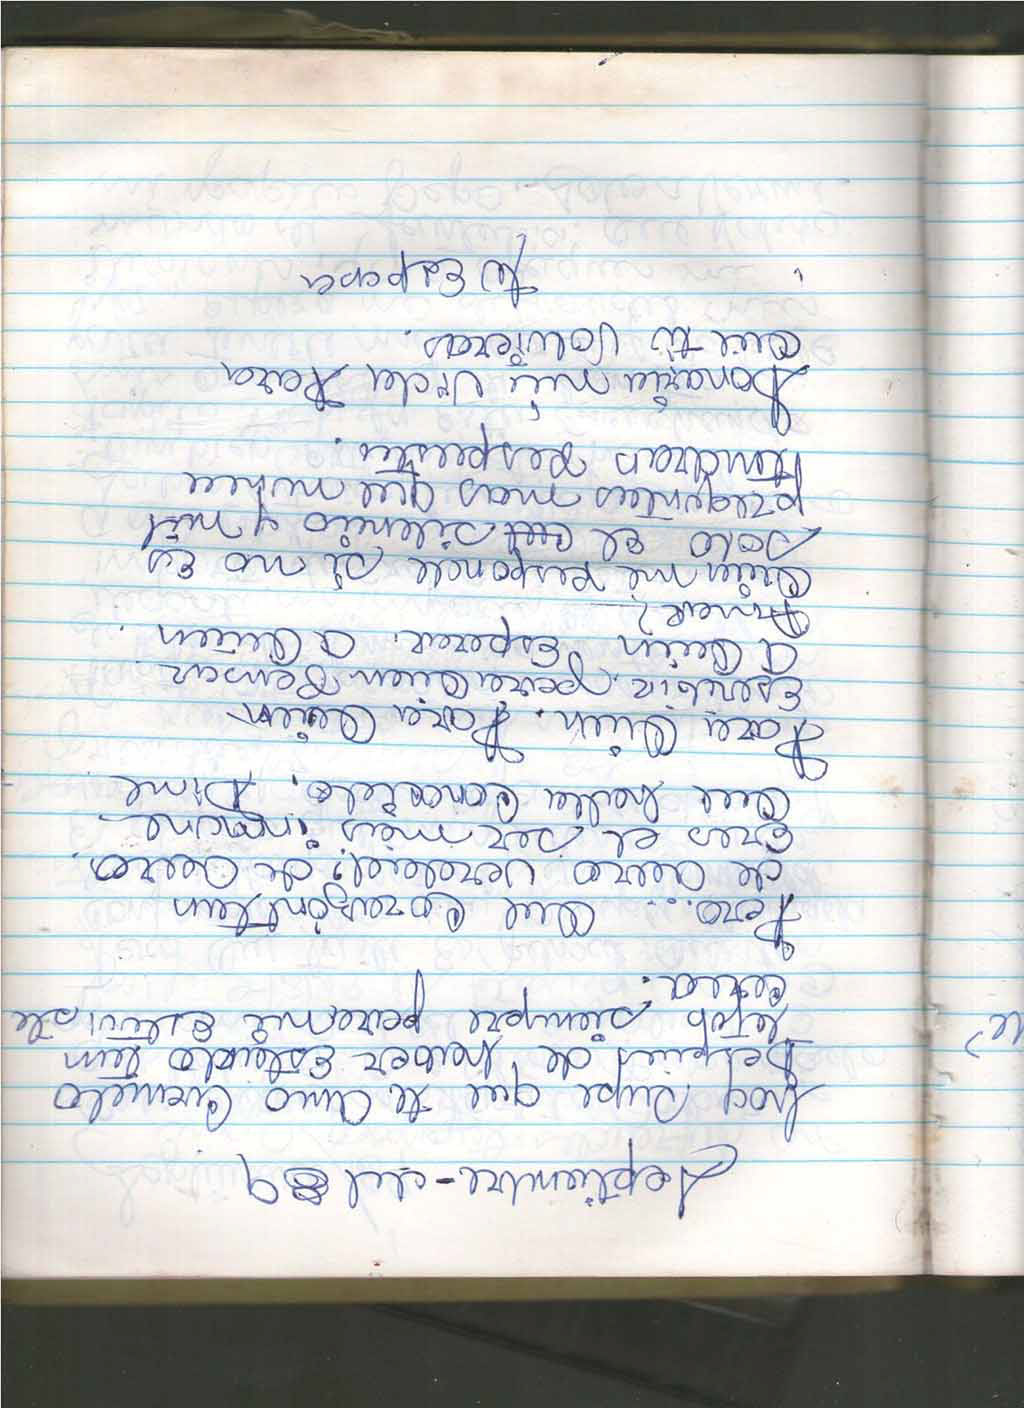 Septiembre-del 89
hoy supe que te Amo Cuando
Despues de haber Estado tan
lejos siempre para mi Estuviste
cerca.
Pero... Que Corazón! tan
de acero verdad? de acero
Eres el ser más
Que halla Conocido. Dime
Para Quien. Para Quien
Escribir. para Quien Pensar
A Quien Esperar. A Quien
Amar?
Quien me Responde si no Es
Solo el silencio y mil
preguntas mas que nunca
tendran Respuesta.
Donaría mi vida Para
Que tú Volvieras.
Te Espera
te?